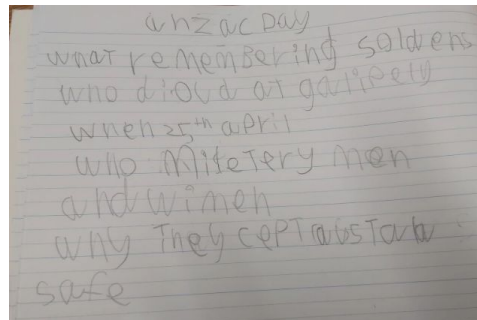 anzac Day
what remembering soldens
who dioud at galipety
when 25th april
who Miletery men
and wimen
why They cept
safe